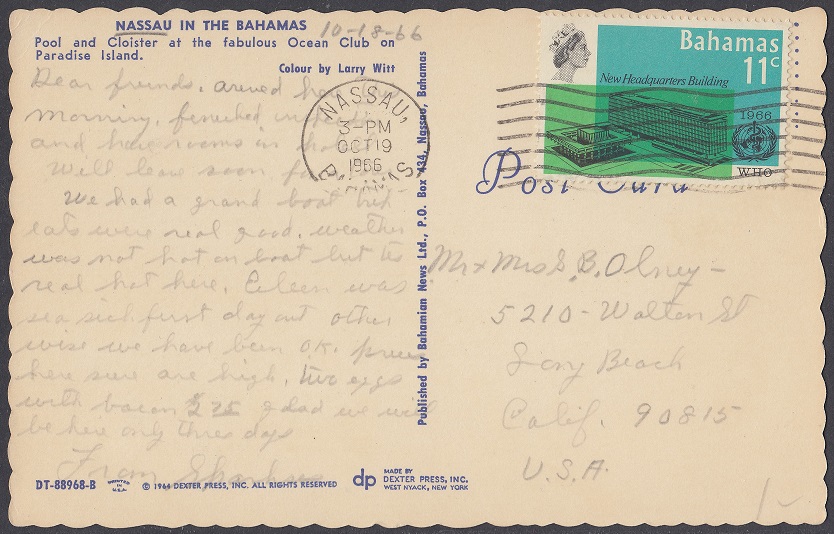 NASSAU IN THE BAHAMAS
10-18-66
Pool and Cloister at the fabulous Ocean Club on
Paradise Island.
Colour by Larry Witt
Dear friends. arrived here this
morning, finished
and have rooms in
Will leave soon
We had a grand boat trip
eats were real good. weather
was not hot on boat but its
real hot here. Eileen was
sea sick first day out other
wise we have been O.K. prices
here sure are high. two eggs
with bacon glad we will
be here only three days
From
DT-88968-B
PRINTED IN U.S.A.
© 1964 DEXTER PRESS, INC. ALL RIGHTS RESERVED
dp
MADE BY
DEXTER PRESS, INC.
WEST NYACK, NEW YORK
Published by Bahamian News Ltd., P.O. Box 434, Nassau, Bahamas
NASSAU,
3-PM
OCT 19
1966
BAHAMAS
Bahamas
11c
New Headquarters Building
1966
WHO
Post Card
Mr + Mrs S. B. Olney -
5210 - Walton St
Long Beach
Calif. 90815
U.S.A.